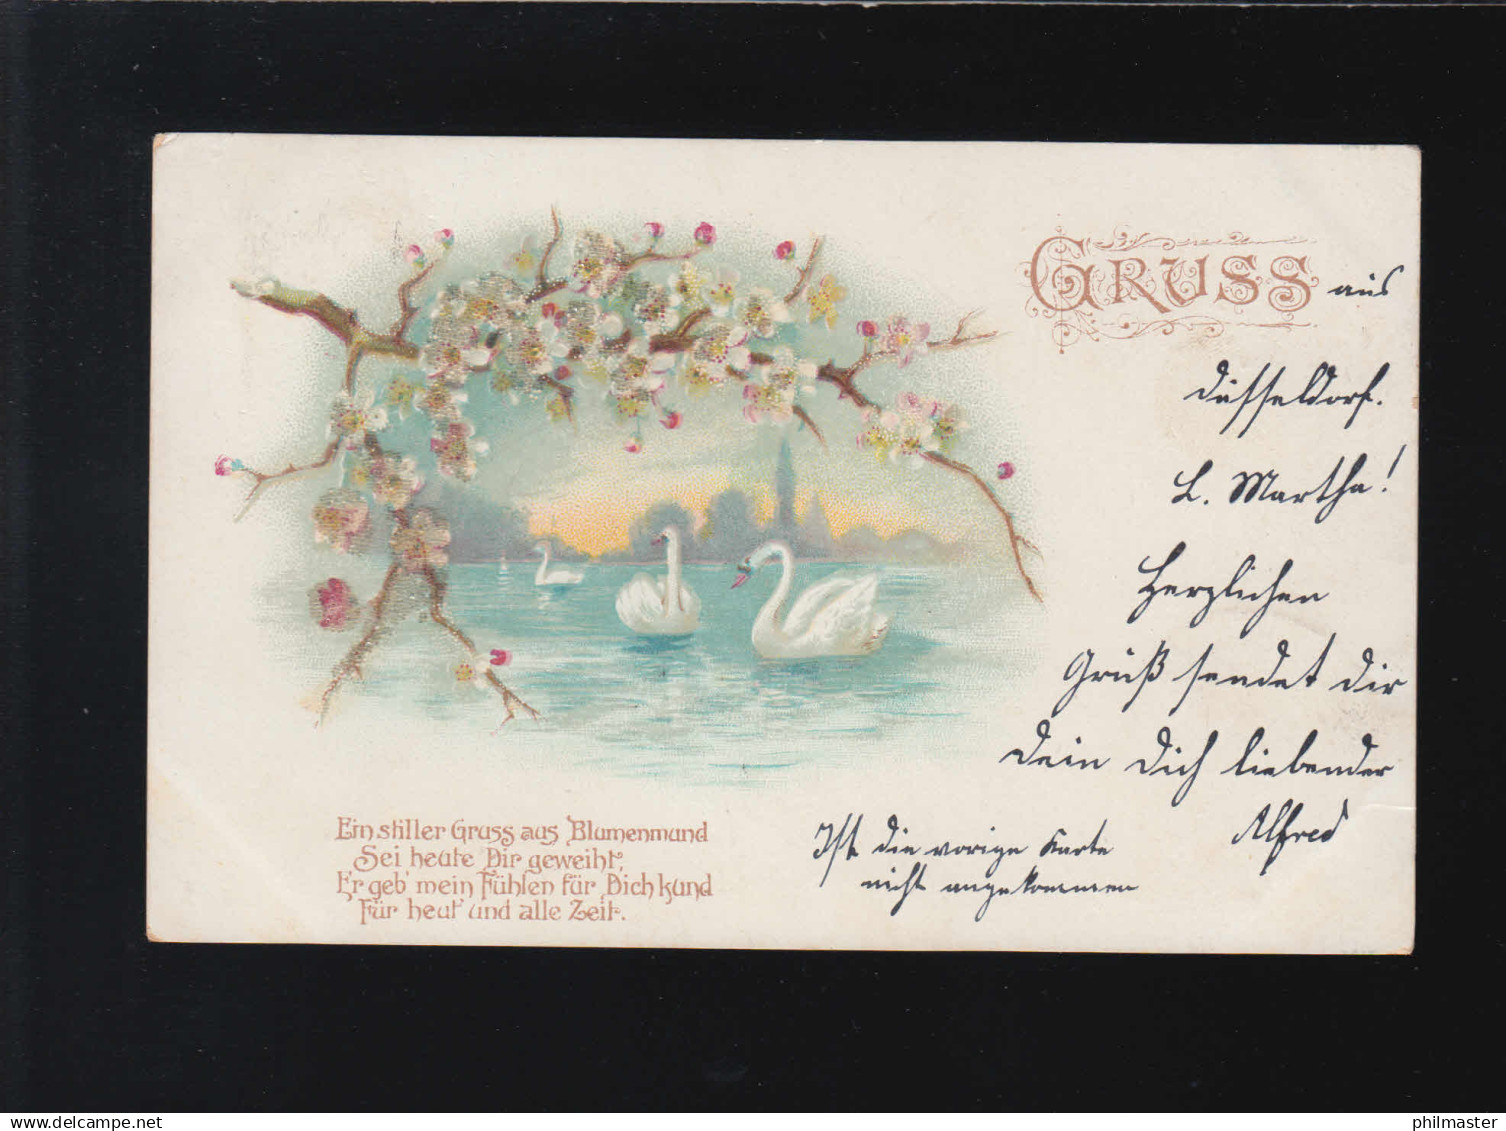 GRUSS aus
Düsseldorf.
L. Martha!
Herzlichen
Gruß sendet dir
Dein Dich liebender
Alfred
Ist die vorige Karte
nicht angekommen
Ein stiller Gruss aus Blumenmund
Sei heute Dir geweiht,
Er geb' mein Fühlen für Dich kund
Für heut' und alle Zeit.
philmaster